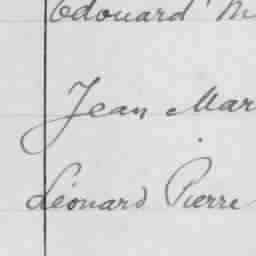 Edouard M
Jean Mar
Léonard Pierre